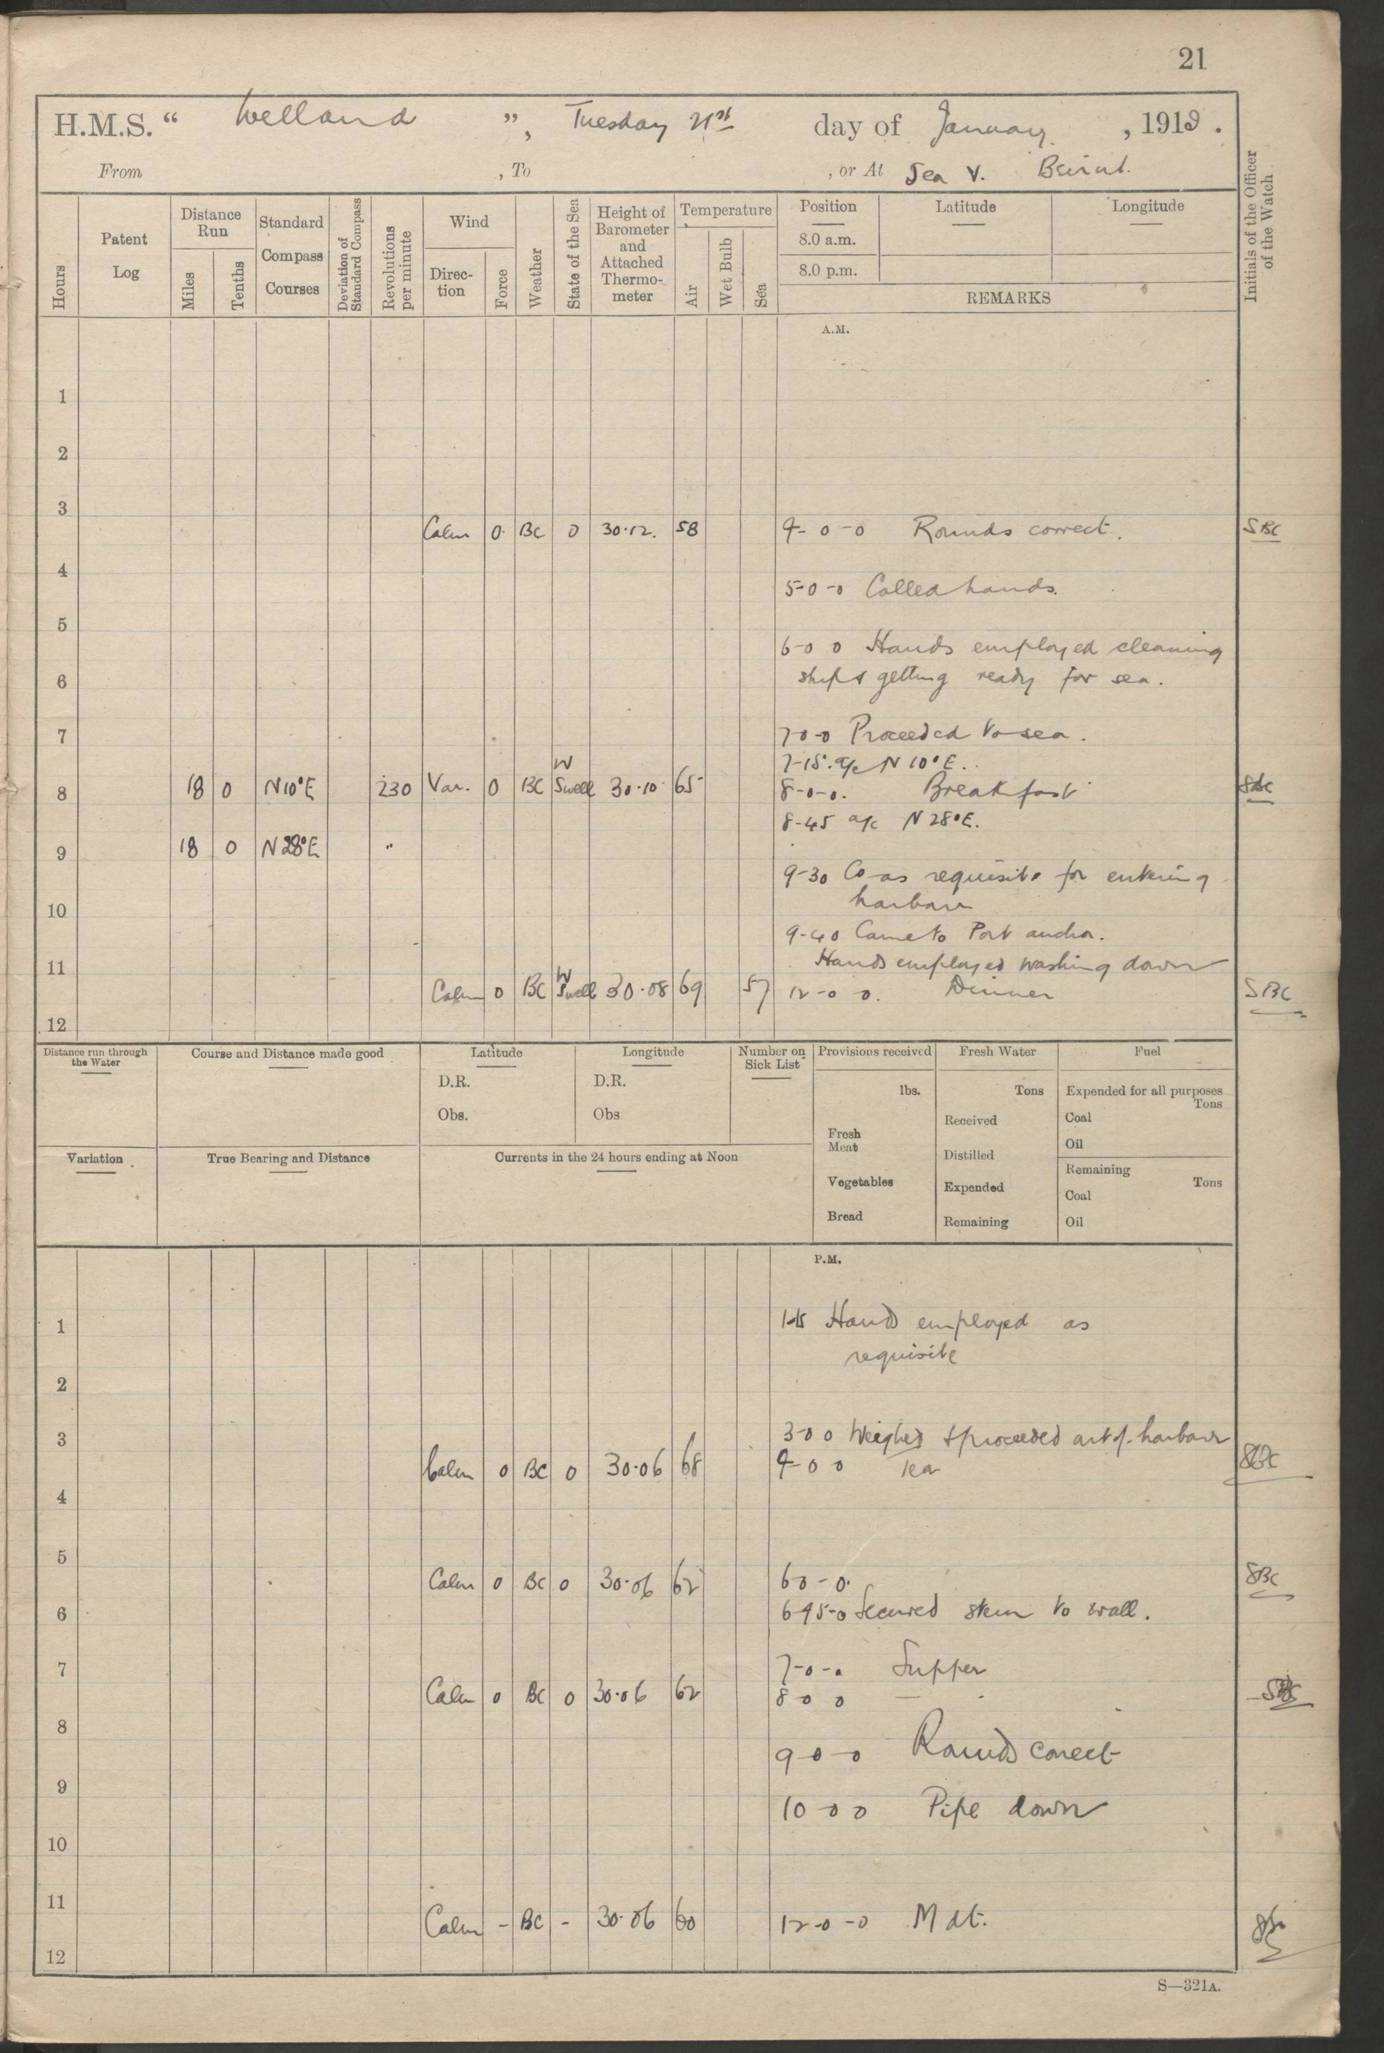 21
H.M.S. “ Welland ”, Tuesday 21st day of January, 1919.
From , To , or At Sea & Beirut.
Hours
Patent Log
Distance Run
Miles
Tenths
Standard Compass Courses
Deviation of Standard Compass
Revolutions per minute
Wind
Direction
Force
Weather
State of the Sea
Height of Barometer and Attached Thermometer
Temperature
Air
Wet Bulb
Sea
Position
8.0 a.m.
8.0 p.m.
Latitude
Longitude
REMARKS
Initials of the Officer of the Watch
A.M.
1
2
3
Calm 0 BC 0 30.12. 58 4-0-0 Rounds correct. SBC
4
5-0-0 Called hands.
5
6-0 0 Hands employed cleaning
6 ship & getting ready for sea.
7 7-0-0 Proceeded to sea.
7-15. a/c N 10°E.
8 18 0 N10°E 230 Var. 0 BC W Swell 30.10 65 8-0-0. Breakfast SBC
8-45 a/c N 28°E.
9 18 0 N28°E "
9-30 Co as requisite for entering
10 harbour
9-40 Came to Port anchor.
11 Hands employed washing down
Calm 0 BC W Swell 30.08 69 57 12-0 0. Dinner SBC
12
Distance run through the Water
Course and Distance made good
Latitude
D.R.
Obs.
Longitude
D.R.
Obs
Number on Sick List
Provisions received
lbs.
Fresh Meat
Vegetables
Bread
Fresh Water
Tons
Received
Distilled
Expended
Remaining
Fuel
Expended for all purposes
Tons
Coal
Oil
Remaining
Tons
Coal
Oil
Variation
True Bearing and Distance
Currents in the 24 hours ending at Noon
P.M.
1 1-15 Hands employed as
requisite
2
3 3-0 0 Weighed & proceeded out of harbour
Calm 0 BC 0 30.06 68 4-0 0 Tea SBC
4
5
Calm 0 BC 0 30.06 62 6 0-0. SBC
6 6-45-0 Secured stern to wall.
7 7-0-0 Supper
Calm 0 BC 0 30.06 62 8 0 0 — SBC
8
9 0-0 Rounds correct
9
10 0 0 Pipe down
10
11
Calm - BC - 30.06 60 12-0-0 Mdt.
12
S—321A.